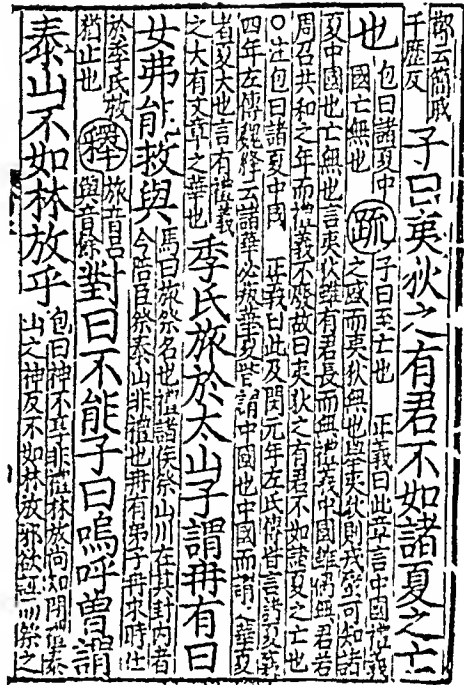 鄭云簡戚千歷反子曰夷狄之有君不如諸夏之亡
也包曰諸夏中國亡無也疏子曰至亡也 正義曰此章言中國禮義之盛而夷狄無也舉夷狄則戎蠻可知諸
夏中國也亡無也言夷狄雖有君長而無禮義中國雖偶無君若
周召共和之年而禮義不廢故曰夷狄之有君不如諸夏之亡也
○注包曰諸夏中國 正義曰此及閔元年左氏傳皆言諸夏襄
四年左傳魏絳云諸華必叛華夏皆謂中國也中國而謂之華夏
者夏大也言有禮義之大有文章之華也季氏旅於太山子謂冉有曰
女弗能救與馬曰旅祭名也禮諸侯祭山川在其封內者今陪臣祭泰山非禮也冉有弟子冉求時仕
於季氏救猶止也釋旅音呂與音餘對曰不能子曰嗚呼曾謂
泰山不如林放乎包曰神不享非禮林放尚知問禮泰山之神反不如林放邪欲誣而祭之